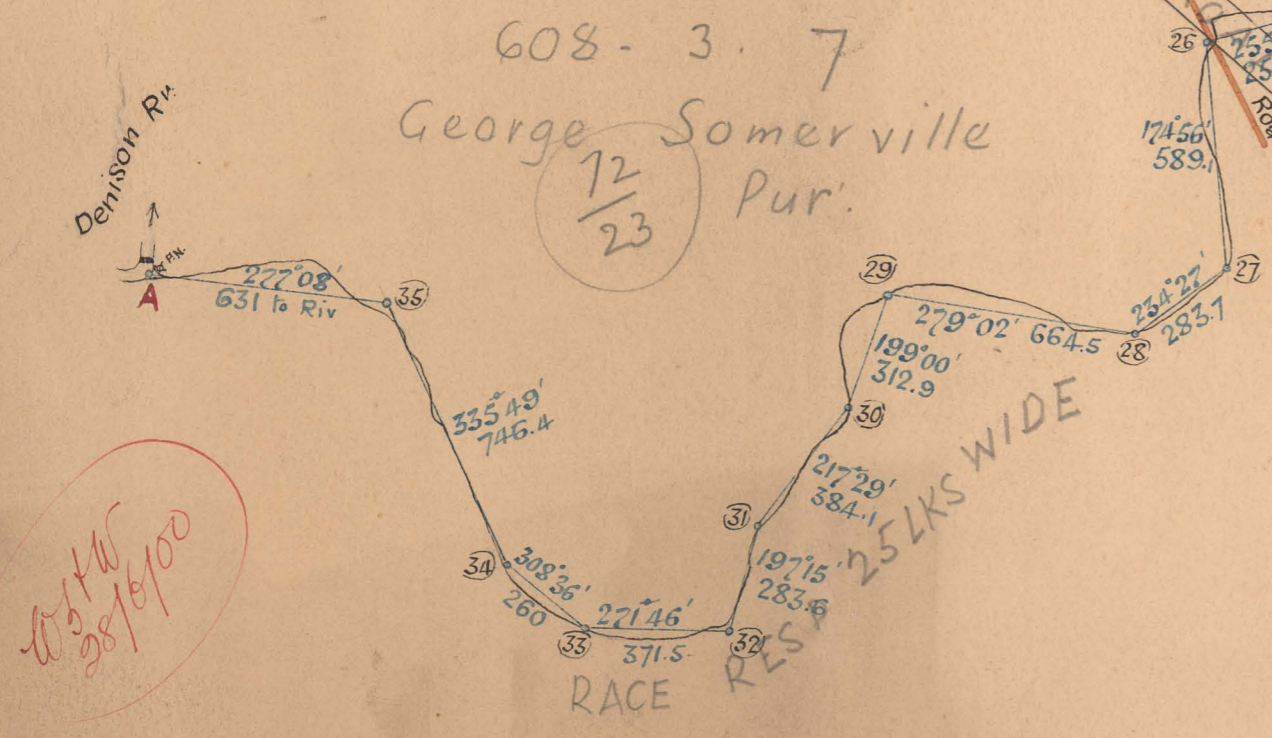 608 - 3 . 7
George Somerville
Pur.
12
23
Denison Rv.
P.N.
A
277°08'
631 to Riv
35
335°49'
746.4
34
308°36'
260
33
271°46'
371.5
32
197°15'
283.6
31
217°29'
384.1
30
199°00'
312.9
29
279°02' 664.5
28
234°27'
283.7
27
174°56'
589.1
26
RACE
25 LKS WIDE
28/6/00